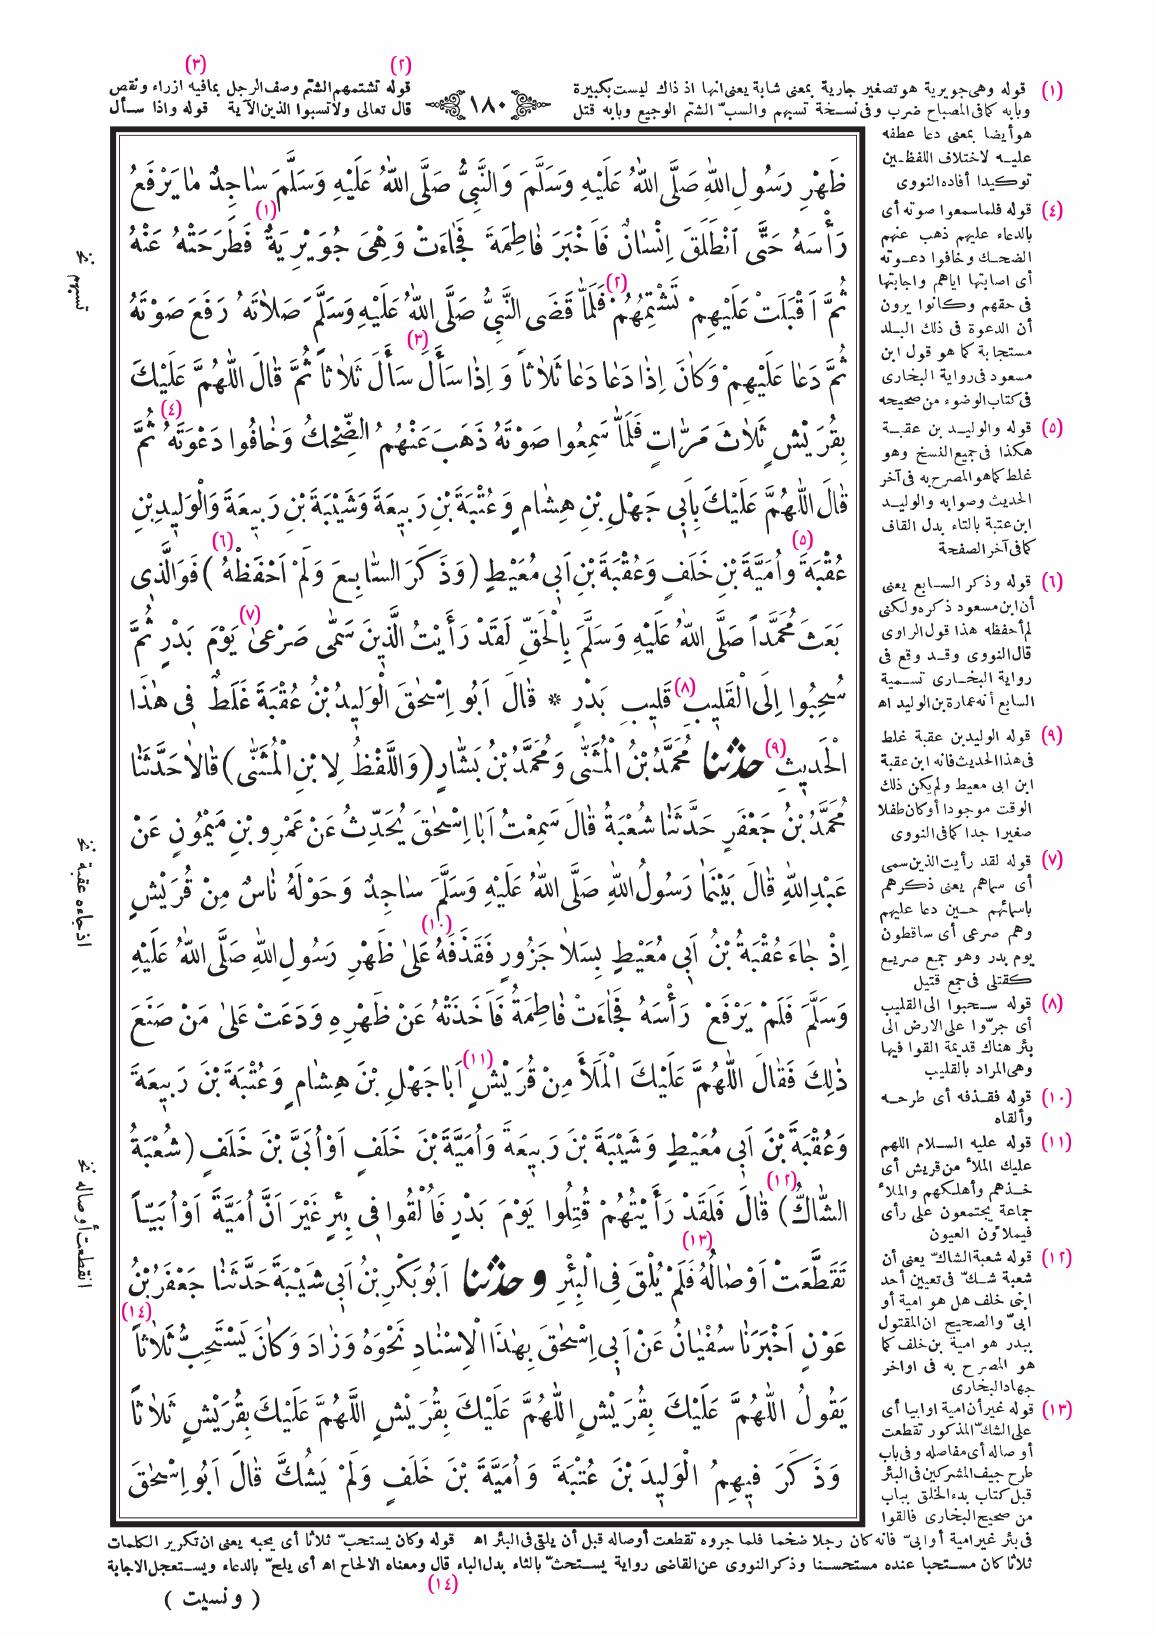 (٣) (٢)
(١) قوله وهى جويرية هو تصغير جارية بمعنى شابة يعنى انها اذ ذاك ليست بكبيرة
﴿١٨٠﴾
قوله تشتمهم الشتم وصف الرجل بما فيه ازراء ونقص
وبابه كما فى المصباح ضرب وفى نسخة تسبهم والسبّ الشتم الوجيع وبابه قتل
قال تعالى ولا تسبوا الذين الآية قوله واذا سأل
هو أيضا بمعنى دعا عطفه
عليه لاختلاف اللفظين
توكيدا أفاده النووى
(٤) قوله فلما سمعوا صوته أى
بالدعاء عليهم ذهب عنهم
الضحك وخافوا دعوته
أى اصابتها اياهم واجابتها
فى حقهم وكانوا يرون
أن الدعوة فى ذلك البلد
مستجابة كما هو قول ابن
مسعود فى رواية البخارى
فى كتاب الوضوء من صحيحه
(٥) قوله والوليد بن عقبة
هكذا فى جميع النسخ وهو
غلط كما هو المصرح به فى آخر
الحديث وصوابه والوليد
ابن عتبة بالتاء بدل القاف
كما فى آخر الصفحة
(٦) قوله وذكر السابع يعنى
أن ابن مسعود ذكره ولكنى
لم أحفظه هذا قول الراوى
قال النووى وقد وقع فى
رواية البخارى تسمية
السابع أنه عمارة بن الوليد اه
(٩) قوله الوليد بن عقبة غلط
فى هذا الحديث فانه ابن عقبة
ابن ابى معيط ولم يكن ذلك
الوقت موجودا أو كان طفلا
صغيرا جدا كما فى النووى
(٧) قوله لقد رأيت الذين سمى
أى سماهم يعنى ذكرهم
باسمائهم حين دعا عليهم
وهم صرعى أى ساقطون
يوم بدر وهو جمع صريع
كقتلى فى جمع قتيل
(٨) قوله سحبوا الى القليب
أى جرّوا على الارض الى
بئر هناك قديمة القوا فيها
وهى المراد بالقليب
(١٠) قوله فقذفه أى طرحه
وألقاه
(١١) قوله عليه السلام اللهم
عليك الملأ من قريش أى
خذهم وأهلكهم والملأ
جماعة يجتمعون على رأى
فيملاؤن العيون
(١٢) قوله شعبة الشاكّ يعنى أن
شعبة شكّ فى تعيين أحد
ابنى خلف هل هو امية أو
ابىّ والصحيح ان المقتول
ببدر هو امية بن خلف كما
هو المصرح به فى اواخر
جهاد البخارى
(١٣) قوله غير أن امية اوابيا أى
على الشكّ المذكور تقطعت
أوصاله أى مفاصله وفى باب
طرح جيف المشركين فى البئر
قبل كتاب بدء الخلق بباب
من صحيح البخارى فالقوا
ظَهْرِ رَسُولِ اللهِ صَلَّى اللهُ عَلَيْهِ وَسَلَّمَ وَالنَّبِيُّ صَلَّى اللهُ عَلَيْهِ وَسَلَّمَ سَاجِدٌ مَا يَرْفَعُ
رَأْسَهُ حَتَّى انْطَلَقَ اِنْسَانٌ فَاَخْبَرَ فَاطِمَةَ فَجَاءَتْ وَهْىَ جُوَيْرِيَةٌ (١) فَطَرَحَتْهُ عَنْهُ
ثُمَّ اَقْبَلَتْ عَلَيْهِمْ تَشْتِمُهُمْ (٢) فَلَمَّا قَضَى النَّبِيُّ صَلَّى اللهُ عَلَيْهِ وَسَلَّمَ صَلَاتَهُ رَفَعَ صَوْتَهُ
ثُمَّ دَعَا عَلَيْهِمْ وَكَانَ اِذَا دَعَا دَعَا ثَلَاثاً وَ اِذَا سَأَلَ (٣) سَأَلَ ثَلَاثاً ثُمَّ قَالَ اللّٰهُمَّ عَلَيْكَ
بِقُرَيْشٍ ثَلَاثَ مَرَّاتٍ فَلَمَّا سَمِعُوا صَوْتَهُ ذَهَبَ عَنْهُمُ الضِّحْكُ وَخَافُوا دَعْوَتَهُ (٤) ثُمَّ
قَالَ اللّٰهُمَّ عَلَيْكَ بِاَبِى جَهْلِ بْنِ هِشَامٍ وَعُتْبَةَ بْنِ رَبِيعَةَ وَشَيْبَةَ بْنِ رَبِيعَةَ وَالْوَلِيدِ بْنِ
عُقْبَةَ (٥) وَاُمَيَّةَ بْنِ خَلَفٍ وَعُقْبَةَ بْنِ اَبِى مُعَيْطٍ (وَذَكَرَ السَّابِعَ وَلَمْ اَحْفَظْهُ (٦)) فَوَالَّذِى
بَعَثَ مُحَمَّداً صَلَّى اللهُ عَلَيْهِ وَسَلَّمَ بِالْحَقِّ لَقَدْ رَأَيْتُ الَّذِينَ سَمَّى صَرْعَى (٧) يَوْمَ بَدْرٍ ثُمَّ
سُحِبُوا اِلَى الْقَلِيبِ (٨) قَلِيبِ بَدْرٍ * قَالَ اَبُو اِسْحٰقَ الْوَلِيدُ بْنُ عُقْبَةَ غَلَطٌ فِى هٰذَا
الْحَدِيثِ (٩) حدثنا مُحَمَّدُ بْنُ الْمُثَنَّى وَمُحَمَّدُ بْنُ بَشَّارٍ (وَاللَّفْظُ لِابْنِ الْمُثَنَّى) قَالَا حَدَّثَنَا
مُحَمَّدُ بْنُ جَعْفَرٍ حَدَّثَنَا شُعْبَةُ قَالَ سَمِعْتُ اَبَا اِسْحٰقَ يُحَدِّثُ عَنْ عَمْرِو بْنِ مَيْمُونٍ عَنْ
عَبْدِ اللهِ قَالَ بَيْنَمَا رَسُولُ اللهِ صَلَّى اللهُ عَلَيْهِ وَسَلَّمَ سَاجِدٌ وَحَوْلَهُ نَاسٌ مِنْ قُرَيْشٍ
اِذْ جَاءَ عُقْبَةُ بْنُ اَبِى مُعَيْطٍ بِسَلَا جَزُورٍ فَقَذَفَهُ (١٠) عَلٰى ظَهْرِ رَسُولِ اللهِ صَلَّى اللهُ عَلَيْهِ
وَسَلَّمَ فَلَمْ يَرْفَعْ رَأْسَهُ فَجَاءَتْ فَاطِمَةُ فَاَخَذَتْهُ عَنْ ظَهْرِهِ وَدَعَتْ عَلٰى مَنْ صَنَعَ
ذٰلِكَ فَقَالَ اللّٰهُمَّ عَلَيْكَ الْمَلَأَ مِنْ قُرَيْشٍ (١١) اَبَا جَهْلِ بْنَ هِشَامٍ وَعُتْبَةَ بْنَ رَبِيعَةَ
وَعُقْبَةَ بْنَ اَبِى مُعَيْطٍ وَشَيْبَةَ بْنَ رَبِيعَةَ وَاُمَيَّةَ بْنَ خَلَفٍ اَوْ اُبَىَّ بْنَ خَلَفٍ (شُعْبَةُ
الشَّاكُّ) (١٢) قَالَ فَلَقَدْ رَأَيْتُهُمْ قُتِلُوا يَوْمَ بَدْرٍ فَاُلْقُوا فِى بِئْرٍ غَيْرَ اَنَّ اُمَيَّةَ اَوْ اُبَيّاً
تَقَطَّعَتْ اَوْصَالُهُ فَلَمْ يُلْقَ (١٣) فِى الْبِئْرِ وحدثنا اَبُو بَكْرِ بْنُ اَبِى شَيْبَةَ حَدَّثَنَا جَعْفَرُ بْنُ
عَوْنٍ اَخْبَرَنَا سُفْيَانُ عَنْ اَبِى اِسْحٰقَ بِهٰذَا الْاِسْنَادِ نَحْوَهُ وَزَادَ وَكَانَ يَسْتَحِبُّ ثَلَاثاً (١٤)
يَقُولُ اللّٰهُمَّ عَلَيْكَ بِقُرَيْشٍ اللّٰهُمَّ عَلَيْكَ بِقُرَيْشٍ اللّٰهُمَّ عَلَيْكَ بِقُرَيْشٍ ثَلَاثاً
وَذَكَرَ فِيهِمُ الْوَلِيدَ بْنَ عُتْبَةَ وَاُمَيَّةَ بْنَ خَلَفٍ وَلَمْ يَشُكَّ قَالَ اَبُو اِسْحٰقَ
تسبهم نخ
اذ جاءه عقبة نخ
انقطعت أوصاله نخ
فى بئر غير امية أو ابىّ فانه كان رجلا ضخما فلما جروه تقطعت أوصاله قبل أن يلقى فى البئر اه قوله وكان يستحبّ ثلاثا أى يحبه يعنى ان تكرير الكلمات
ثلاثا كان مستحبا عنده مستحسنا وذكر النووى عن القاضى رواية يستحثّ بالثاء بدل الباء قال ومعناه الالحاح اه أى يلحّ بالدعاء ويستعجل الاجابة
(١٤)
( ونسيت )